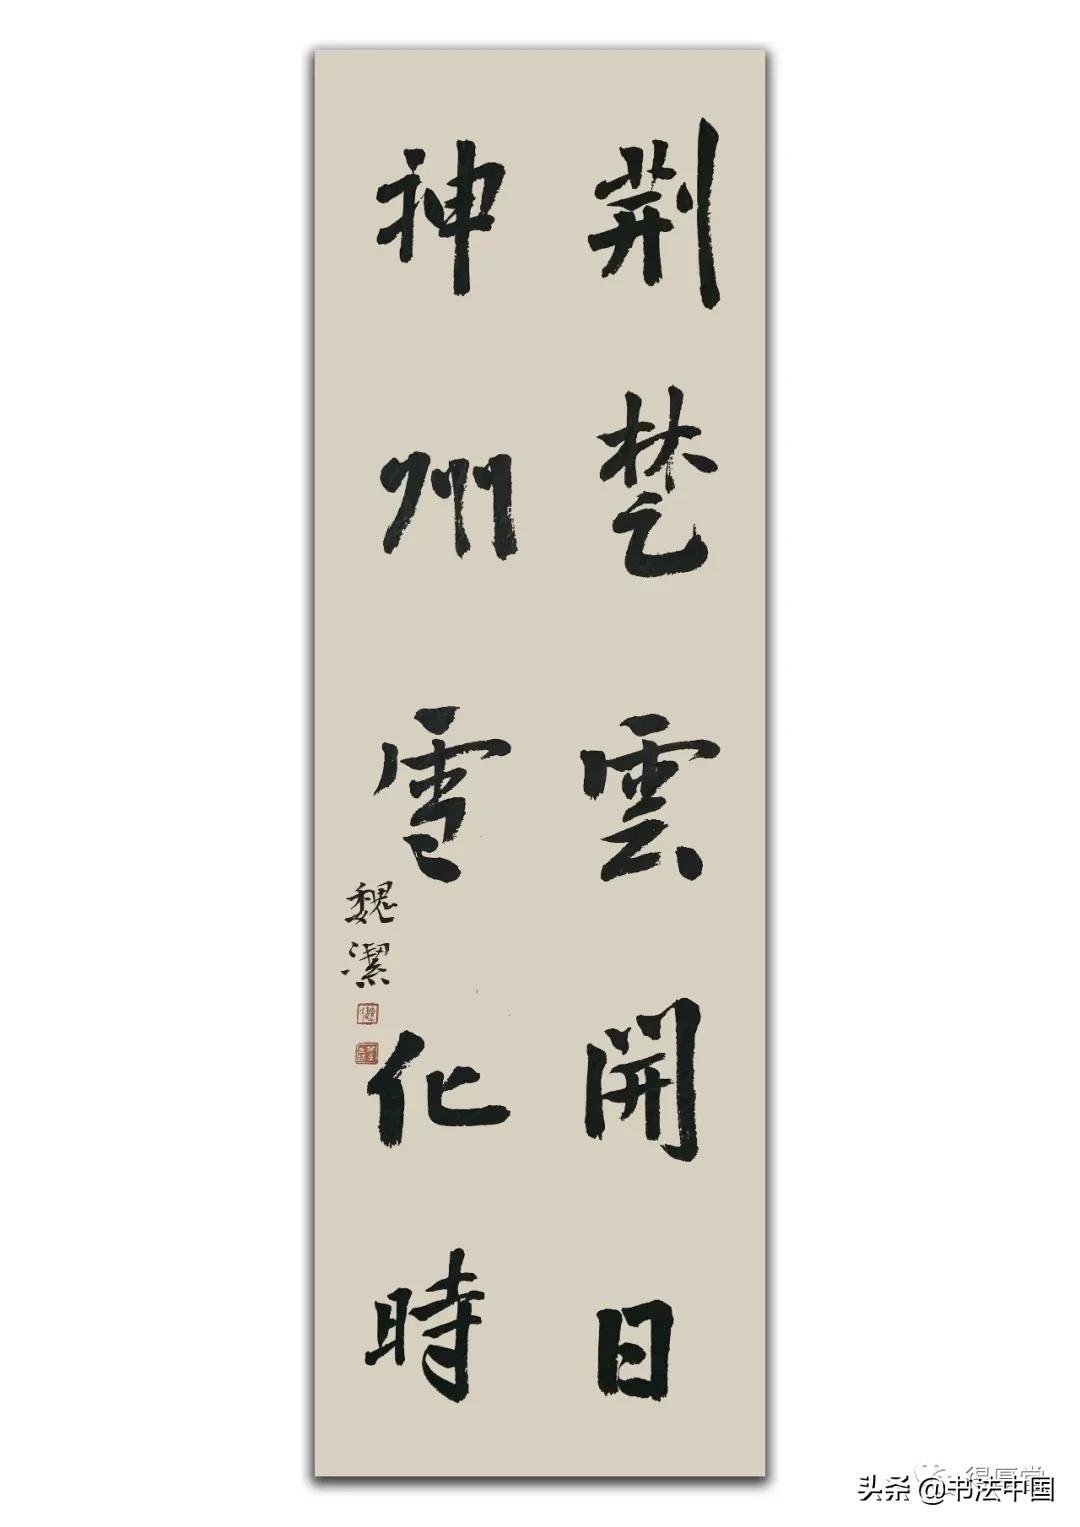 荆楚雲開日
神州雪化時
魏潔
头条 @书法中国